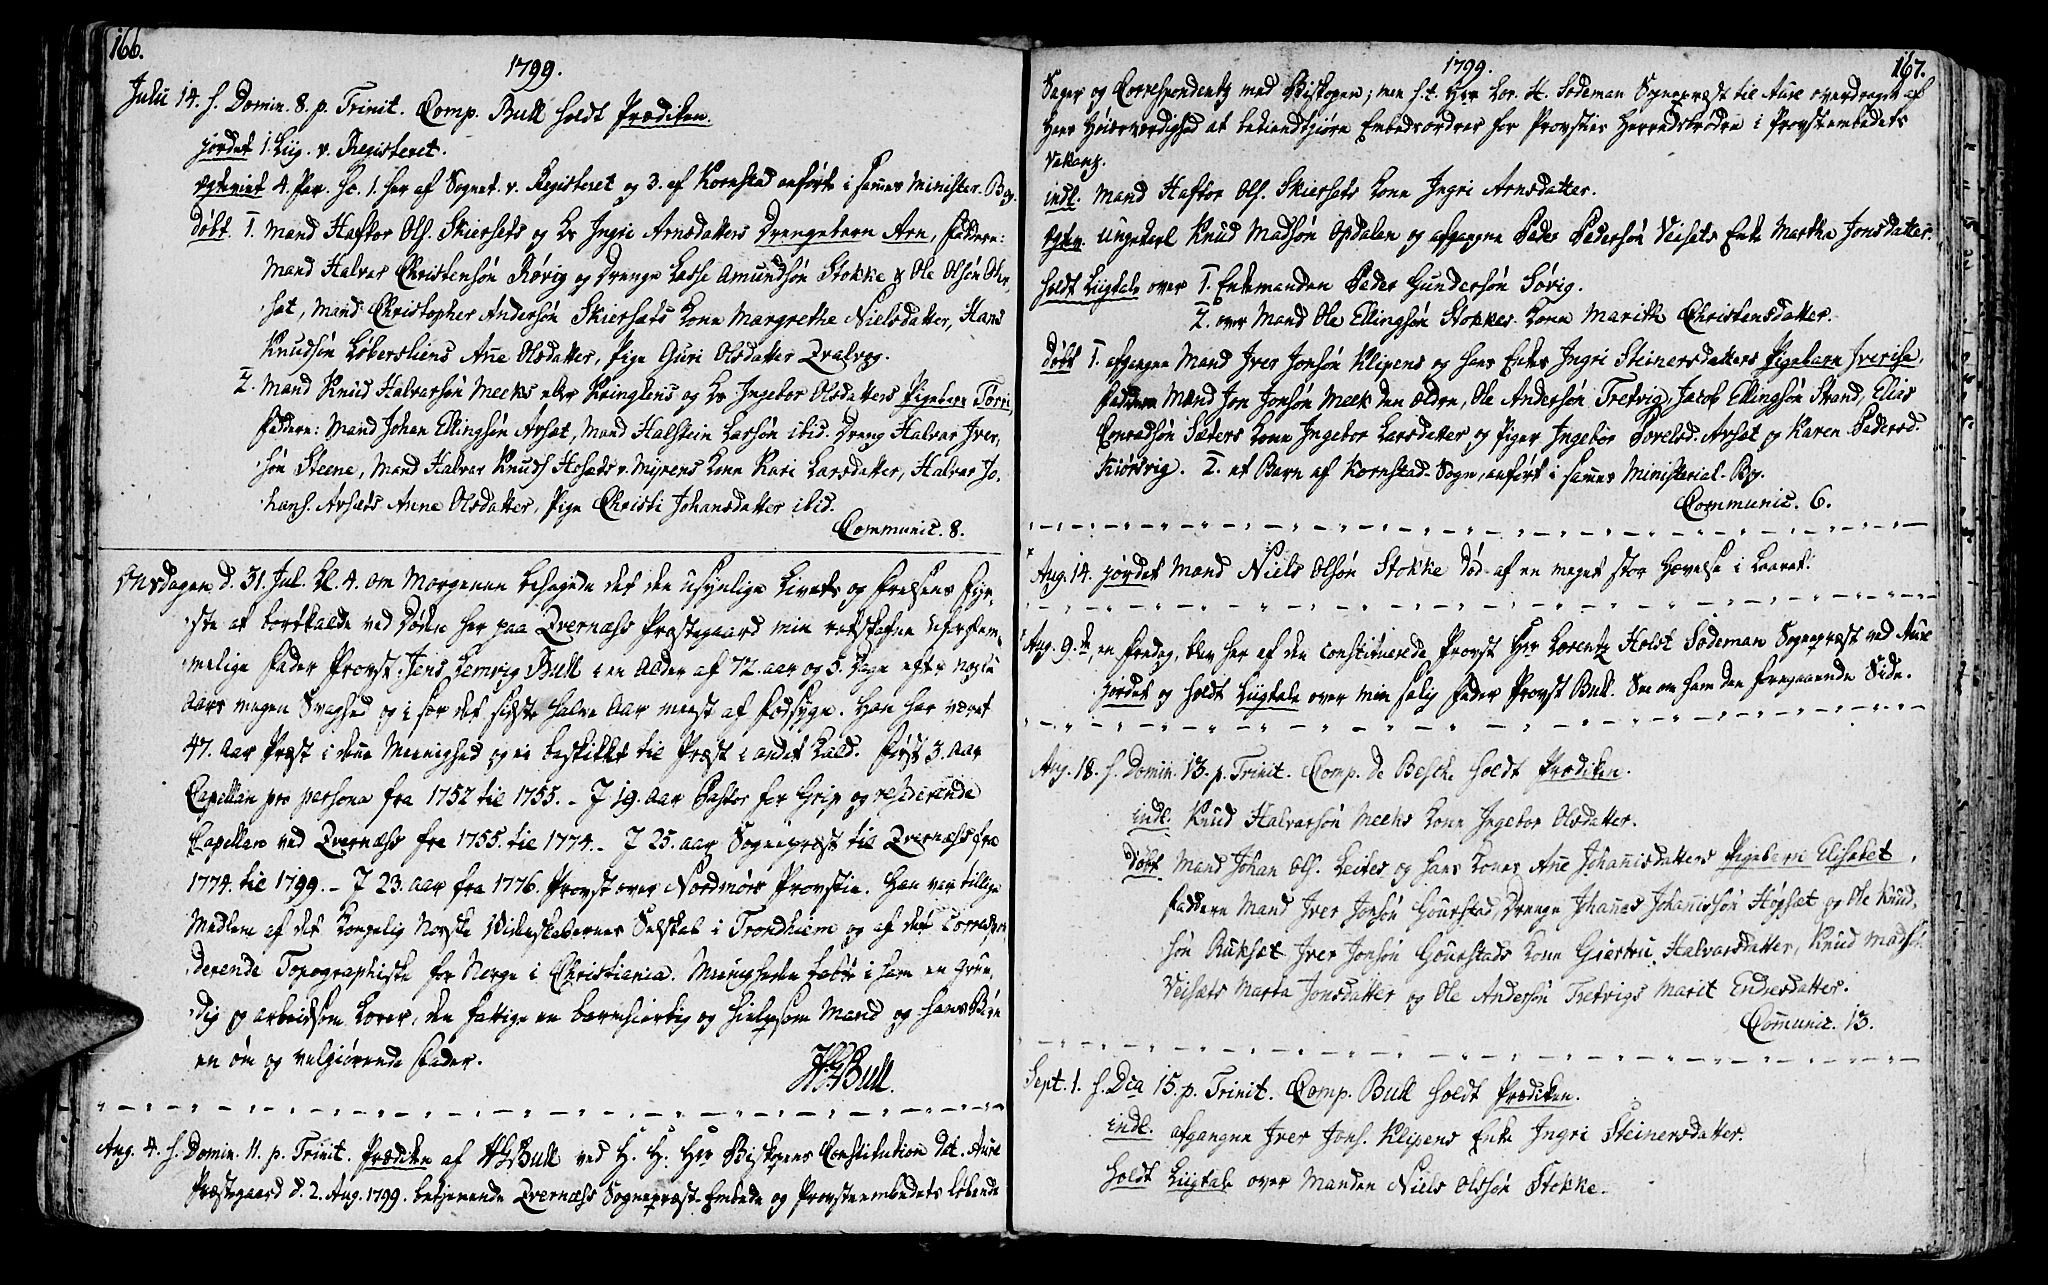 166.
1799.
Julii 14. s. Domin. 8. p. Trinit. Comp. Bull holdt Prædiken.
jordet 1. Liig. v. Registeret.
egteviet 4. Par. Sc. 1. her af Sognet v. Registeret og 3. af Kornstad anført i sam̅es Minister. Bog.
døbt. 1. Mand Haftor Ols. Skiersets og Ingri Arnsdatters Drengebarn Arn, Faddere:
Mand Halvar Christensøn Røvig og Drenge Lasse Amundsøn Stokke & Ole Olsøn
sæt, Mand Christopher Andersøn Skiersæts Kone Margrethe Nielsdatter, Hans
Knudsøn Løbersliens Ane Olsdatter, Pige Guri Olsdatter Qvalvog.
2. Mand Knud Halvarsøn Meeks eller Kringlens og Ingebor Olsdatters Pigebarn Torri,
Faddere: Mand Johan Ellingsøn Arsæt, Mand Halstein Larsøn ibid. Dreng Halvar Iver,
søn Steene, Mand Halvar Knuds. Hosæts v. Myrens Kone Kari Larsdatter, Halvar Jo,
hans. Arsæts Anne Olsdatter, Pige Christi Johansdatter ibid.
Communic. 8.
Onsdagen d. 31. Jul. Kl. 4. om Morgenen behagede det den usynlige Livets og Frelsens Fyr,
ste at bortkalde ved Døden her paa Qvernæss Præstegaard min retskafne uforglem,
melige Fader Provst Jens Lemvig Bull i en Alder af 72. aar og 5. Dage efter nogle
Aars megen Svaghed og i sær det sidste halve Aar meest af Fodsyge. Han har været
47. Aar Præst i denne Menighed og ei beskikket til Præst i andet Kald. Først 3. Aar
Capellan pro persona fra 1752 til 1755. - I 19. Aar Pastor for Grip og residerende
Capellan ved Qvernæss fra 1755. til 1774. - I 25. aar Sognepræst til Qvernæss fra
1774. til 1799. - I 23. aar fra 1776. Provst over Nordmørs Provstie. Han var tillige
Medlem af det Kongelig Norske Videnskabernes Selskab i Trondhiem og af det Correspon,
derende Topographiske for Norge i Christiania. Menigheden tabte i ham en grun,
dig og arbeidsom Lærer, de fattige en barmhiertig og hielpsom Mand og hans Børn
en øm og velgiørende Fader.
Bull.
Aug. 4. s. Domin. 11. p. Trinit. Prædiken af Bull ved H. H. Herr Biskopens Constitution dat. Aure
Præstegaard d. 2. Aug. 1799. betjenende Qvernæss Sognepræst Embede og Provsteembedets løbende
1799.
167.
Sager og Correspondentz med Biskopen; men s. t. Herr Lor. H. Sodeman Sognepræst til Aure overdraget af
Hans Høiærværdighed at bekiendtgiøre Embedsordrer for Provstiets Herredsbrødre i Provstembedets
Vakanz.
indl. Mand Haftor Ols. Skiersets Kone Ingri Arnsdatter.
egtev. Ungekarl Knud Madsøn Opdalen og afgangne Peder Pedersøn Veisets Enke Martha Jonsdatter.
holdt Liigtale over 1. Enkemanden Peder Gundersøn Sørig.
2. over Mand Ole Ellingsøn Stokkes Kone Marith Christensdatter.
døbt 1. afgangne Mand Iver Jonsøn Klipens og hans Enkes Ingri Steinersdatters Pigebarn Iverise,
Faddere Mand Jon Jonsøn Meek den Eldre, Ole Andersøn Tretvig, Jacob Ellingsøn Strand, Elias
Conradsøn Sæters Kone Ingebor Larsdatter og Piger Ingebor Povelsd. Arsæt og Karen Pedersd.
Kiørsvig. 2. et Barn af Kornstad-Sogn, anført i sam̅es Ministerial-Bog.
Communic. 6.
Aug. 14. jordet Mand Niels Olsøn Stokke død af en meget stor Hævelse i Laaret.
Aug. 9. en Fredag, blev her af den constituerede Provst Herr Lorentz Holst Sodeman Sognepræst ved Aure
jordet og holdt Liigtale over min salig Fader Provst Bull. See om ham den foregaaende Side.
Aug. 18. s. Domin. 13. p. Trinit. Comp. de Besche holdt Prædiken.
indl. Knud Halvarsøn Meeks Kone Ingebor Olsdatter.
døbt. Mand Johan Ols. Leites og hans Kones Ane Johan̅isdatters Pigebarn Elisabet,
Faddere Mand Iver Jonsøn Gourstad, Drenge Johan̅es Johan̅issøn Høgset og Ole Knud,
søn Rukset, Iver Jonsøn Gourstads Kone Giertru Halvarsdatter, Knud Madsøn
Veisæts Marta Jonsdatter og Ole Andersøn Tretvigs Marit Endresdatter.
Com̅unic. 13.
Sept. 1. s. Dca 15. p. Trinit. Comp. Bull holdt Prædiken.
indl. afgangne Iver Jons. Klipens Enke Ingri Steinersdatter.
holdt Liigtale over Manden Niels Olssøn Stokke.